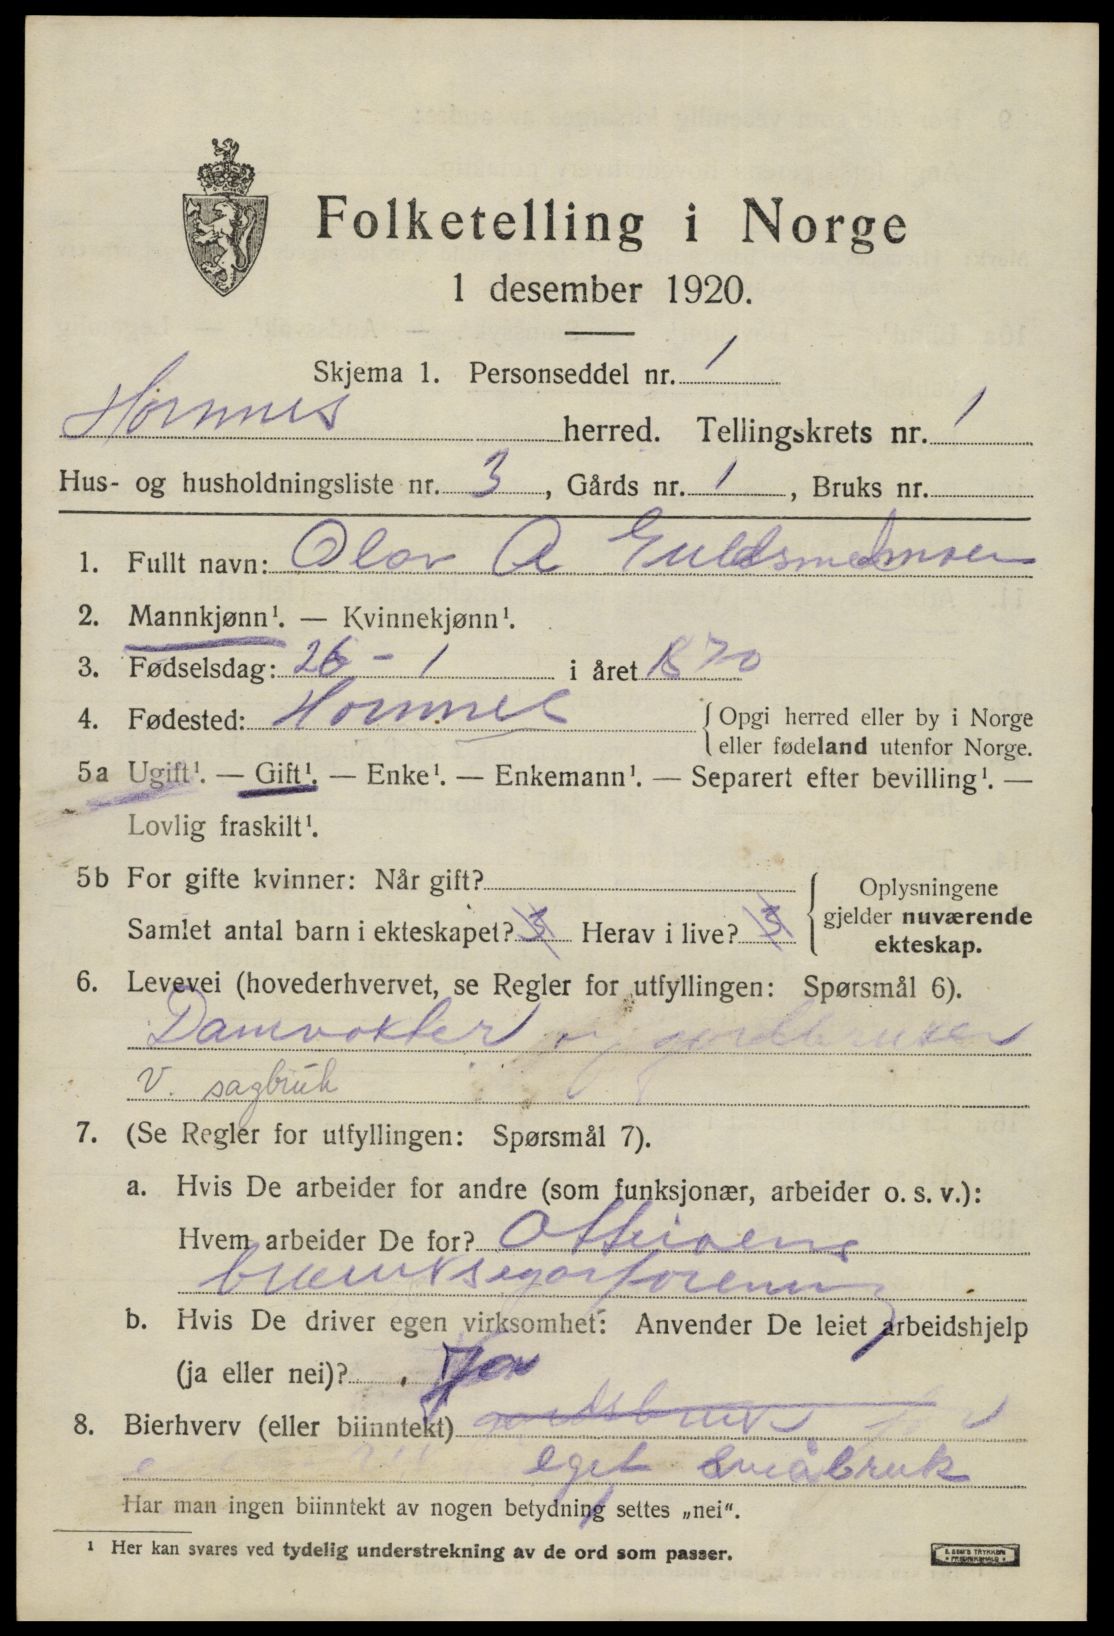 Folketelling i Norge
1 desember 1920.
Skjema 1. Personseddel nr. 1
Hornnes herred. Tellingskrets nr. 1
Hus- og husholdningsliste nr. 3, Gårds nr. 1, Bruks nr.
1. Fullt navn: Olav A
2. Mannkjønn¹. — Kvinnekjønn¹.
3. Fødselsdag: 26 - 1 i året 1870
4. Fødested: Hornnes { Opgi herred eller by i Norge
eller fødeland utenfor Norge.
5a Ugift¹. — Gift¹. — Enke¹. — Enkemann¹. — Separert efter bevilling¹. —
Lovlig fraskilt¹.
5b For gifte kvinner: Når gift? { Oplysningene
gjelder nuværende
ekteskap.
Samlet antal barn i ekteskapet? 3 Herav i live? 3
6. Levevei (hovederhvervet, se Regler for utfyllingen: Spørsmål 6).
Damvokter og gardbruker
v. sagbruk
7. (Se Regler for utfyllingen: Spørsmål 7).
a. Hvis De arbeider for andre (som funksjonær, arbeider o. s. v.):
Hvem arbeider De for? Otteraens
brukseigarforening
b. Hvis De driver egen virksomhet: Anvender De leiet arbeidshjelp
(ja eller nei)?
8. Bierhverv (eller biinntekt)
eget småbruk
Har man ingen biinntekt av nogen betydning settes „nei“.
¹ Her kan svares ved tydelig understrekning av de ord som passer.